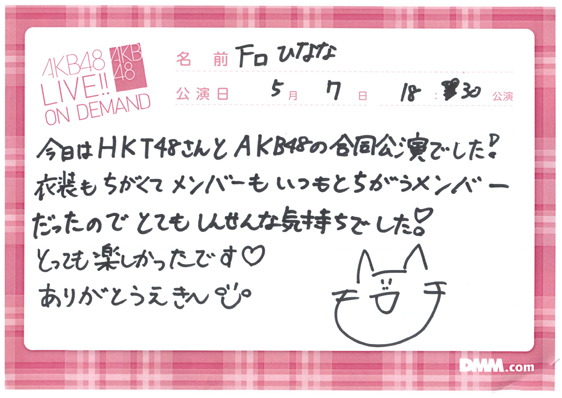 AKB48
LIVE!!
ON DEMAND
AKB
48
名 前 下口ひなな
公演日 5月 7日 18:30 公演
今日はHKT48さんとAKB48の合同公演でした!
衣装もちがくてメンバーもいつもとちがうメンバー
だったのでとてもしんせんな気持ちでした!
とっても楽しかったです♡
ありがとうえきん
DMM.com